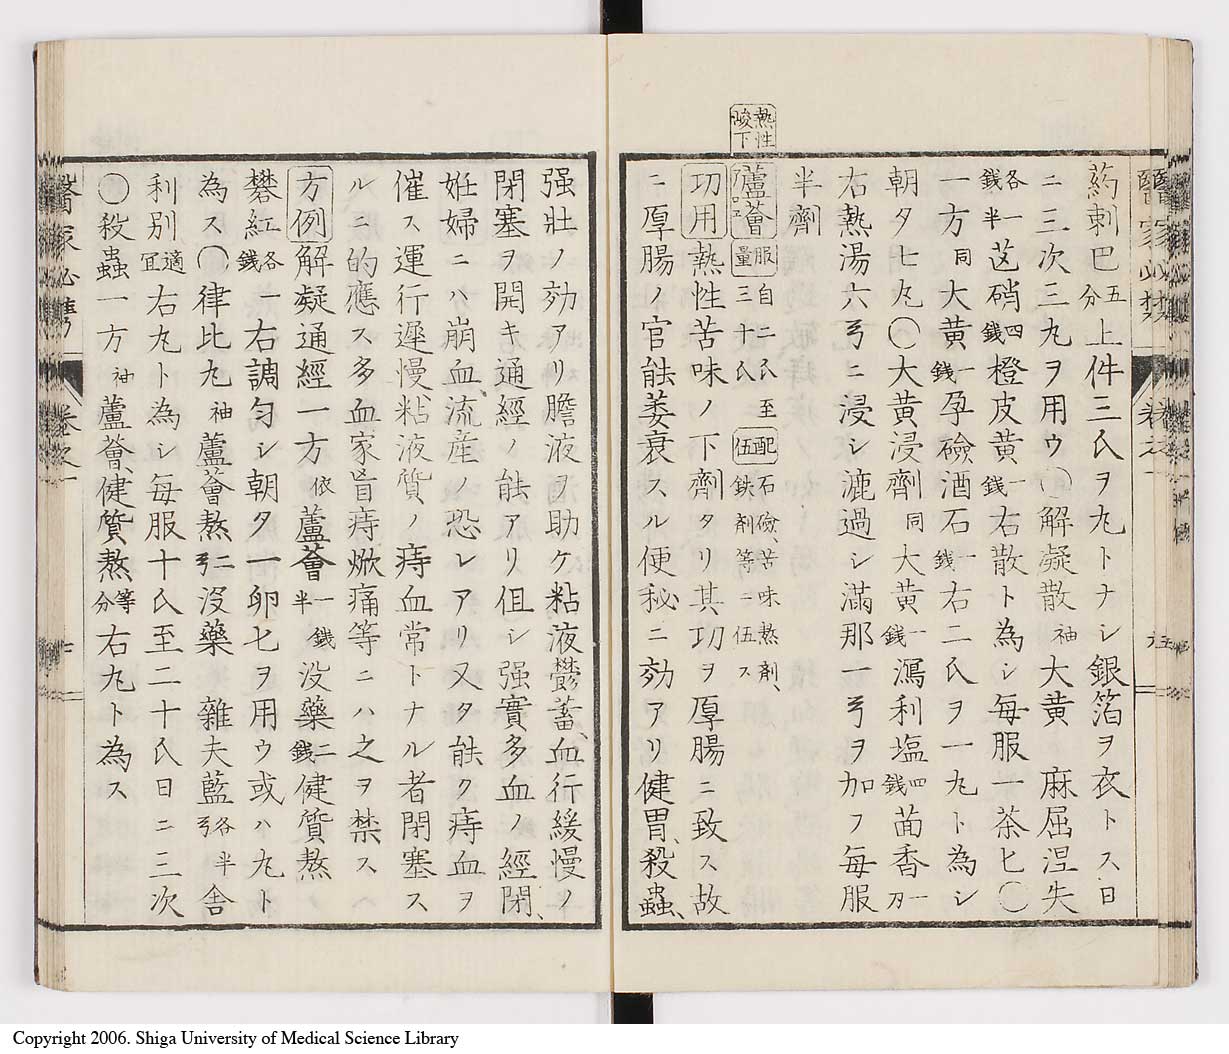 葯剌巴五分上件三氏ヲ丸トナシ銀箔ヲ衣トス日
ニ二三次三丸ヲ用ウ〇解凝散袖大黄 麻屈涅失
各一銭半芒硝四銭橙皮黄一銭右散ト為シ毎服一茶匕〇
一方同大黄一銭孕礆酒石一銭右二氏ヲ一丸ト為シ
朝夕七丸〇大黄浸劑同大黄一銭瀉利塩四銭茴香一刀
右熱湯六弓ニ浸シ漉過シ満那一弓ヲ加フ毎服
半劑
熱性峻下
蘆薈服量自二氏至三十氏配伍石礆、苦味熱剤、鉄剤等ニ伍ス
功用熱性苦味ノ下劑タリ其功ヲ厚腸ニ致ス故
ニ厚腸ノ官能萎衰スル便秘ニ効アリ健胃、殺蟲、
强壯ノ効アリ膽液ヲ助ケ粘液鬱蓄、血行緩慢ノ
閉塞ヲ開キ通經ノ能アリ但シ强實多血ノ經閉、
妊婦ニハ崩血、流産ノ恐レアリ又タ能ク痔血ヲ
催ス運行遲慢、粘液質ノ痔血常トナル者閉塞ス
ルニ的應ス多血家盲痔焮痛等ニハ之ヲ禁スヘ
方例解凝通經一方依蘆薈一銭半没藥二銭健質熬
礬紅各一銭右調匀シ朝夕一卵匕ヲ用ウ或ハ丸ト
為ス〇律比丸袖蘆薈熬二弓没藥 雜夫藍各半弓舎
利別適宜右丸ト為シ毎服十氏至二十氏日ニ三次
〇殺蟲一方袖蘆薈、健質熬等分右丸ト為ス
醫家必携
卷之一
Copyright 2006. Shiga University of Medical Science Library